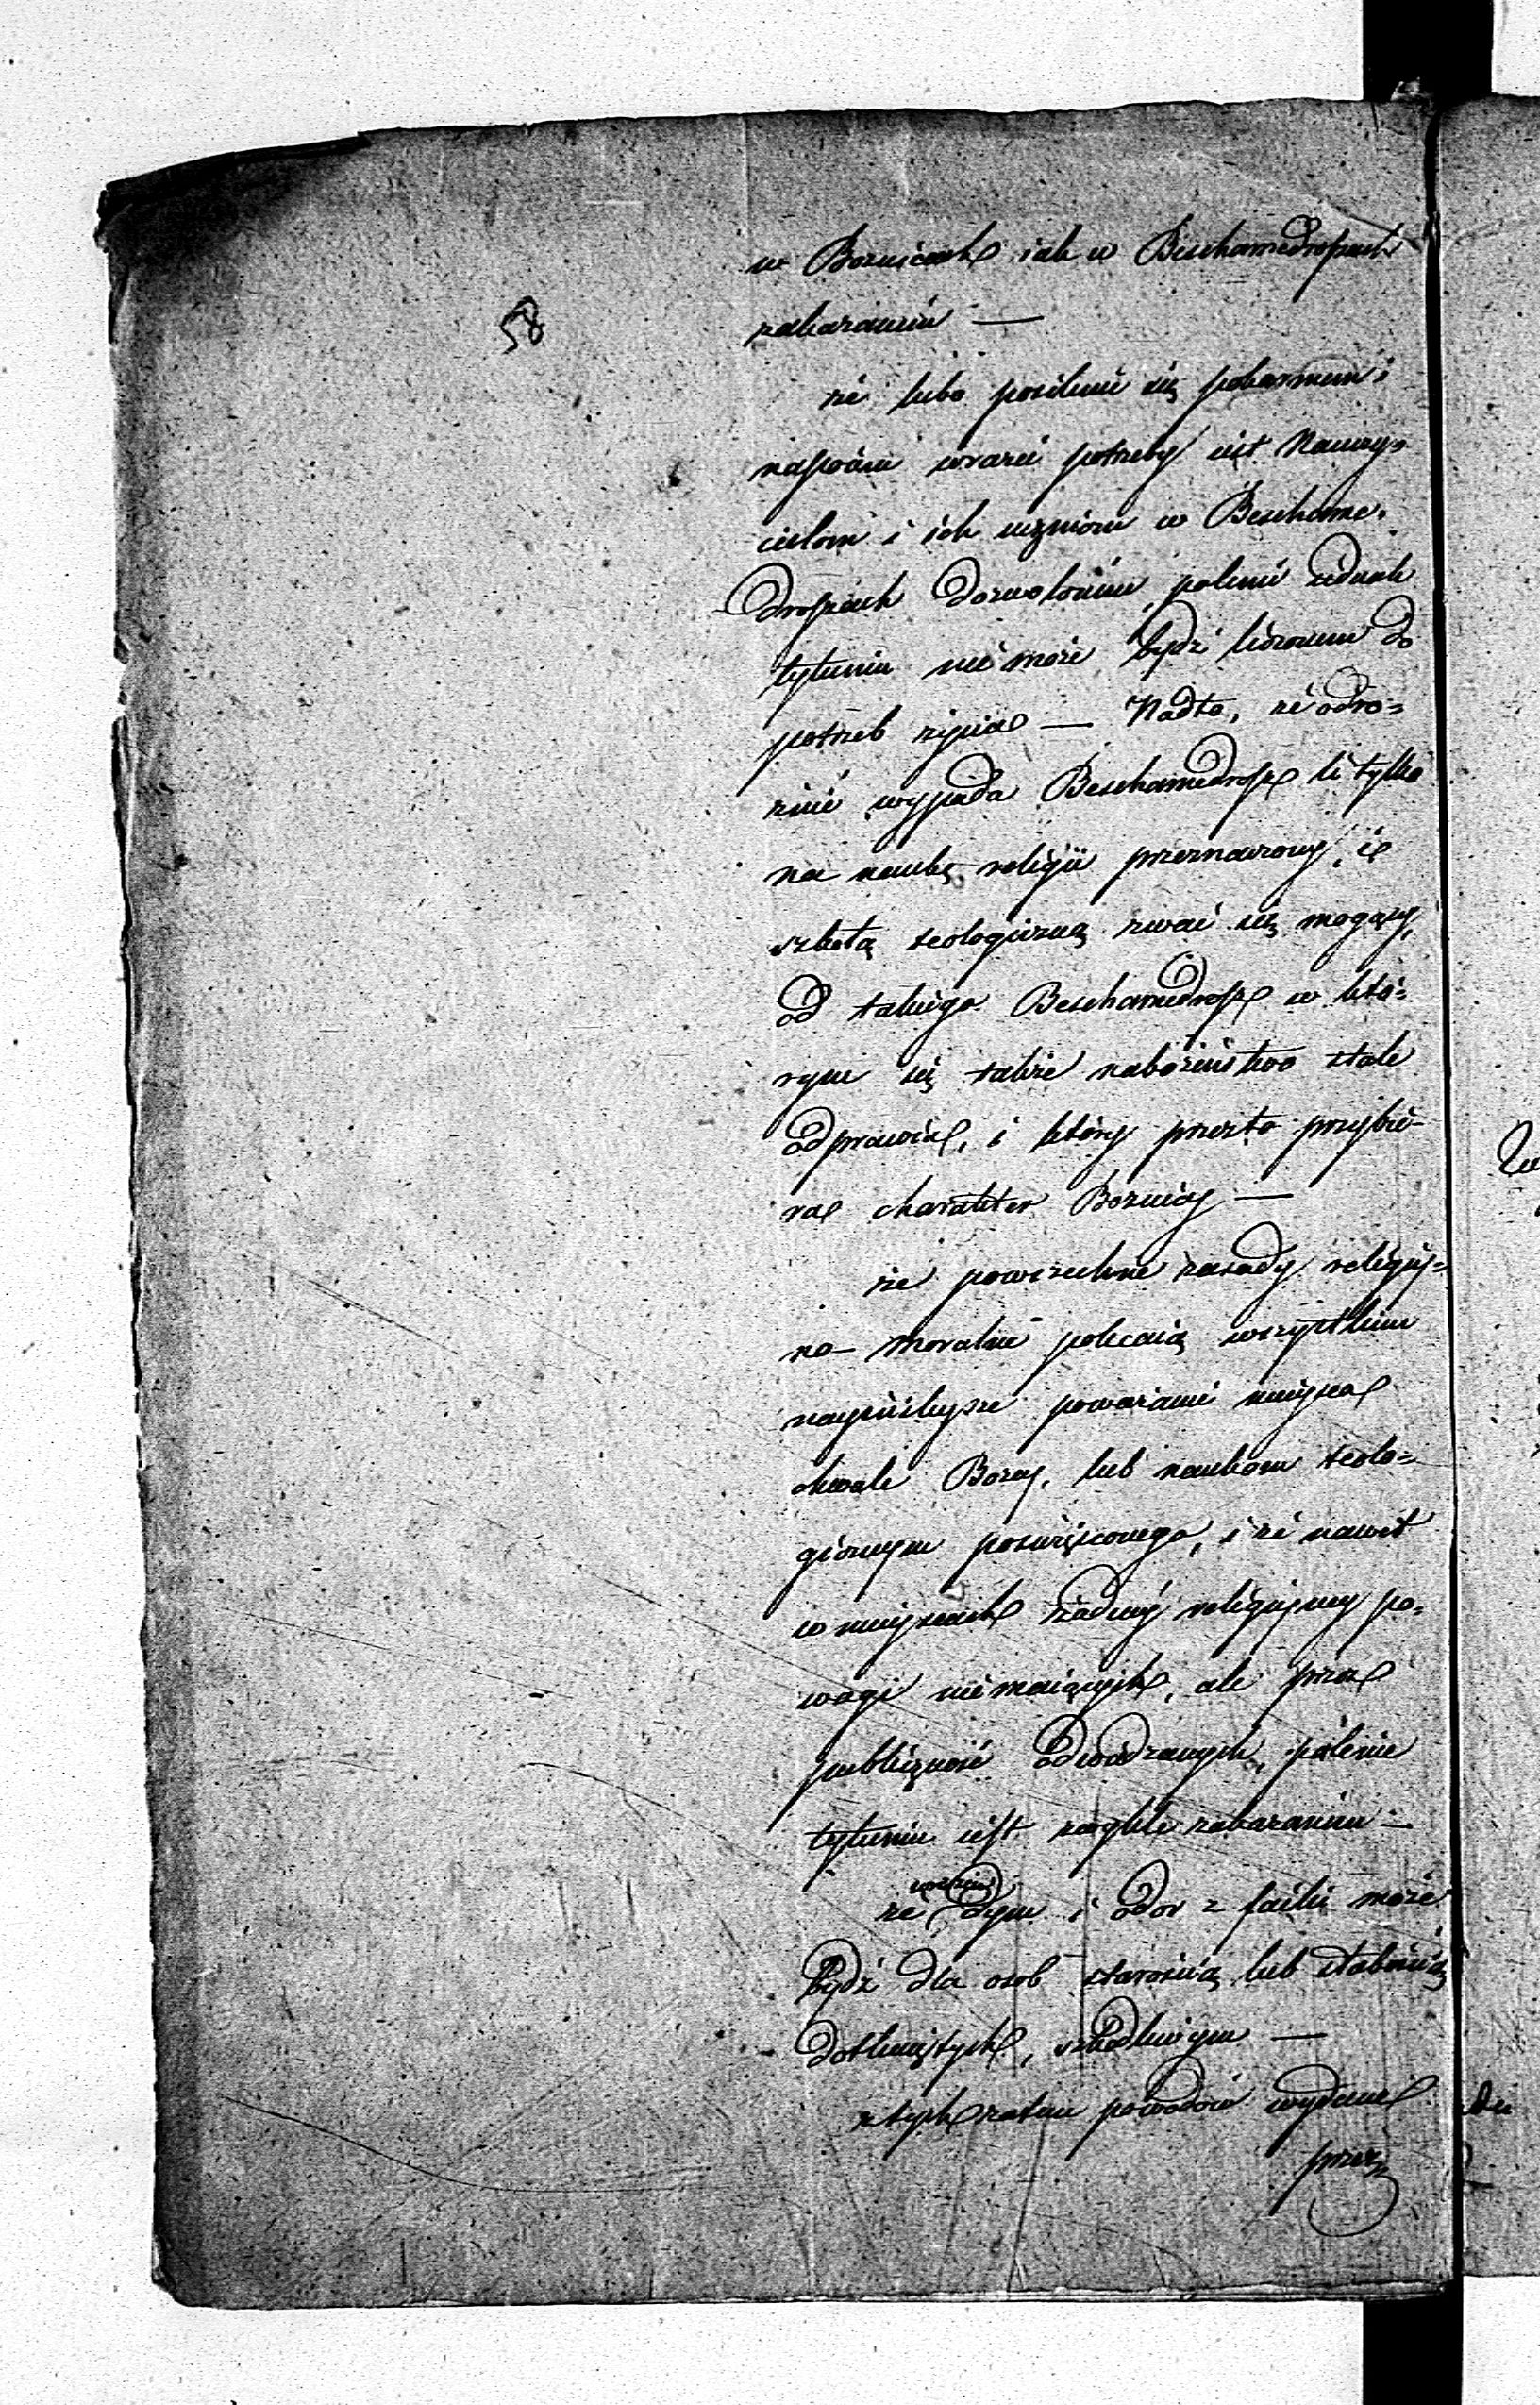 58
w Boznicach iak w Beschamedroszach
zakazaniu —
że lubo posilenie się pokarmem i
napoiem w razie potrzeby iest Nauczy=
cielom i ich uczniom w Beschame=
droszach dozwolonem, palenie iednak
tytuniu nie może bydź liczonem do
potrzeb życia — Nadto, że odro=
żnić wypada Beschamedrosz li tylko
na naukę religii przeznaczony, i
szkołą teologiczną zwać się mogący,
od takiego Beschamedrosz w któ=
rym się także nabożeństwo stale
odprawia, i który przeto przybie=
ra charakter Boznicy —
że powszechne zasady religij=
no-moralne polecaią wszystkim
nayściśleysze poważanie mieysca
chwale Bożey, lub naukom teolo=
gicznym poświęconego, i że nawet
w mieyscach żadney religijney po=
wagi nie maiących, ale przez
publiczność odwiedzanych, palenie
tytuniu iest zwykle zakazanem —
że wreszcie dym i odor z faiki może
bydź dla osob starością lub słabością
dotkniętych, szkodliwym —
z tych zatem powodów wydane
przez